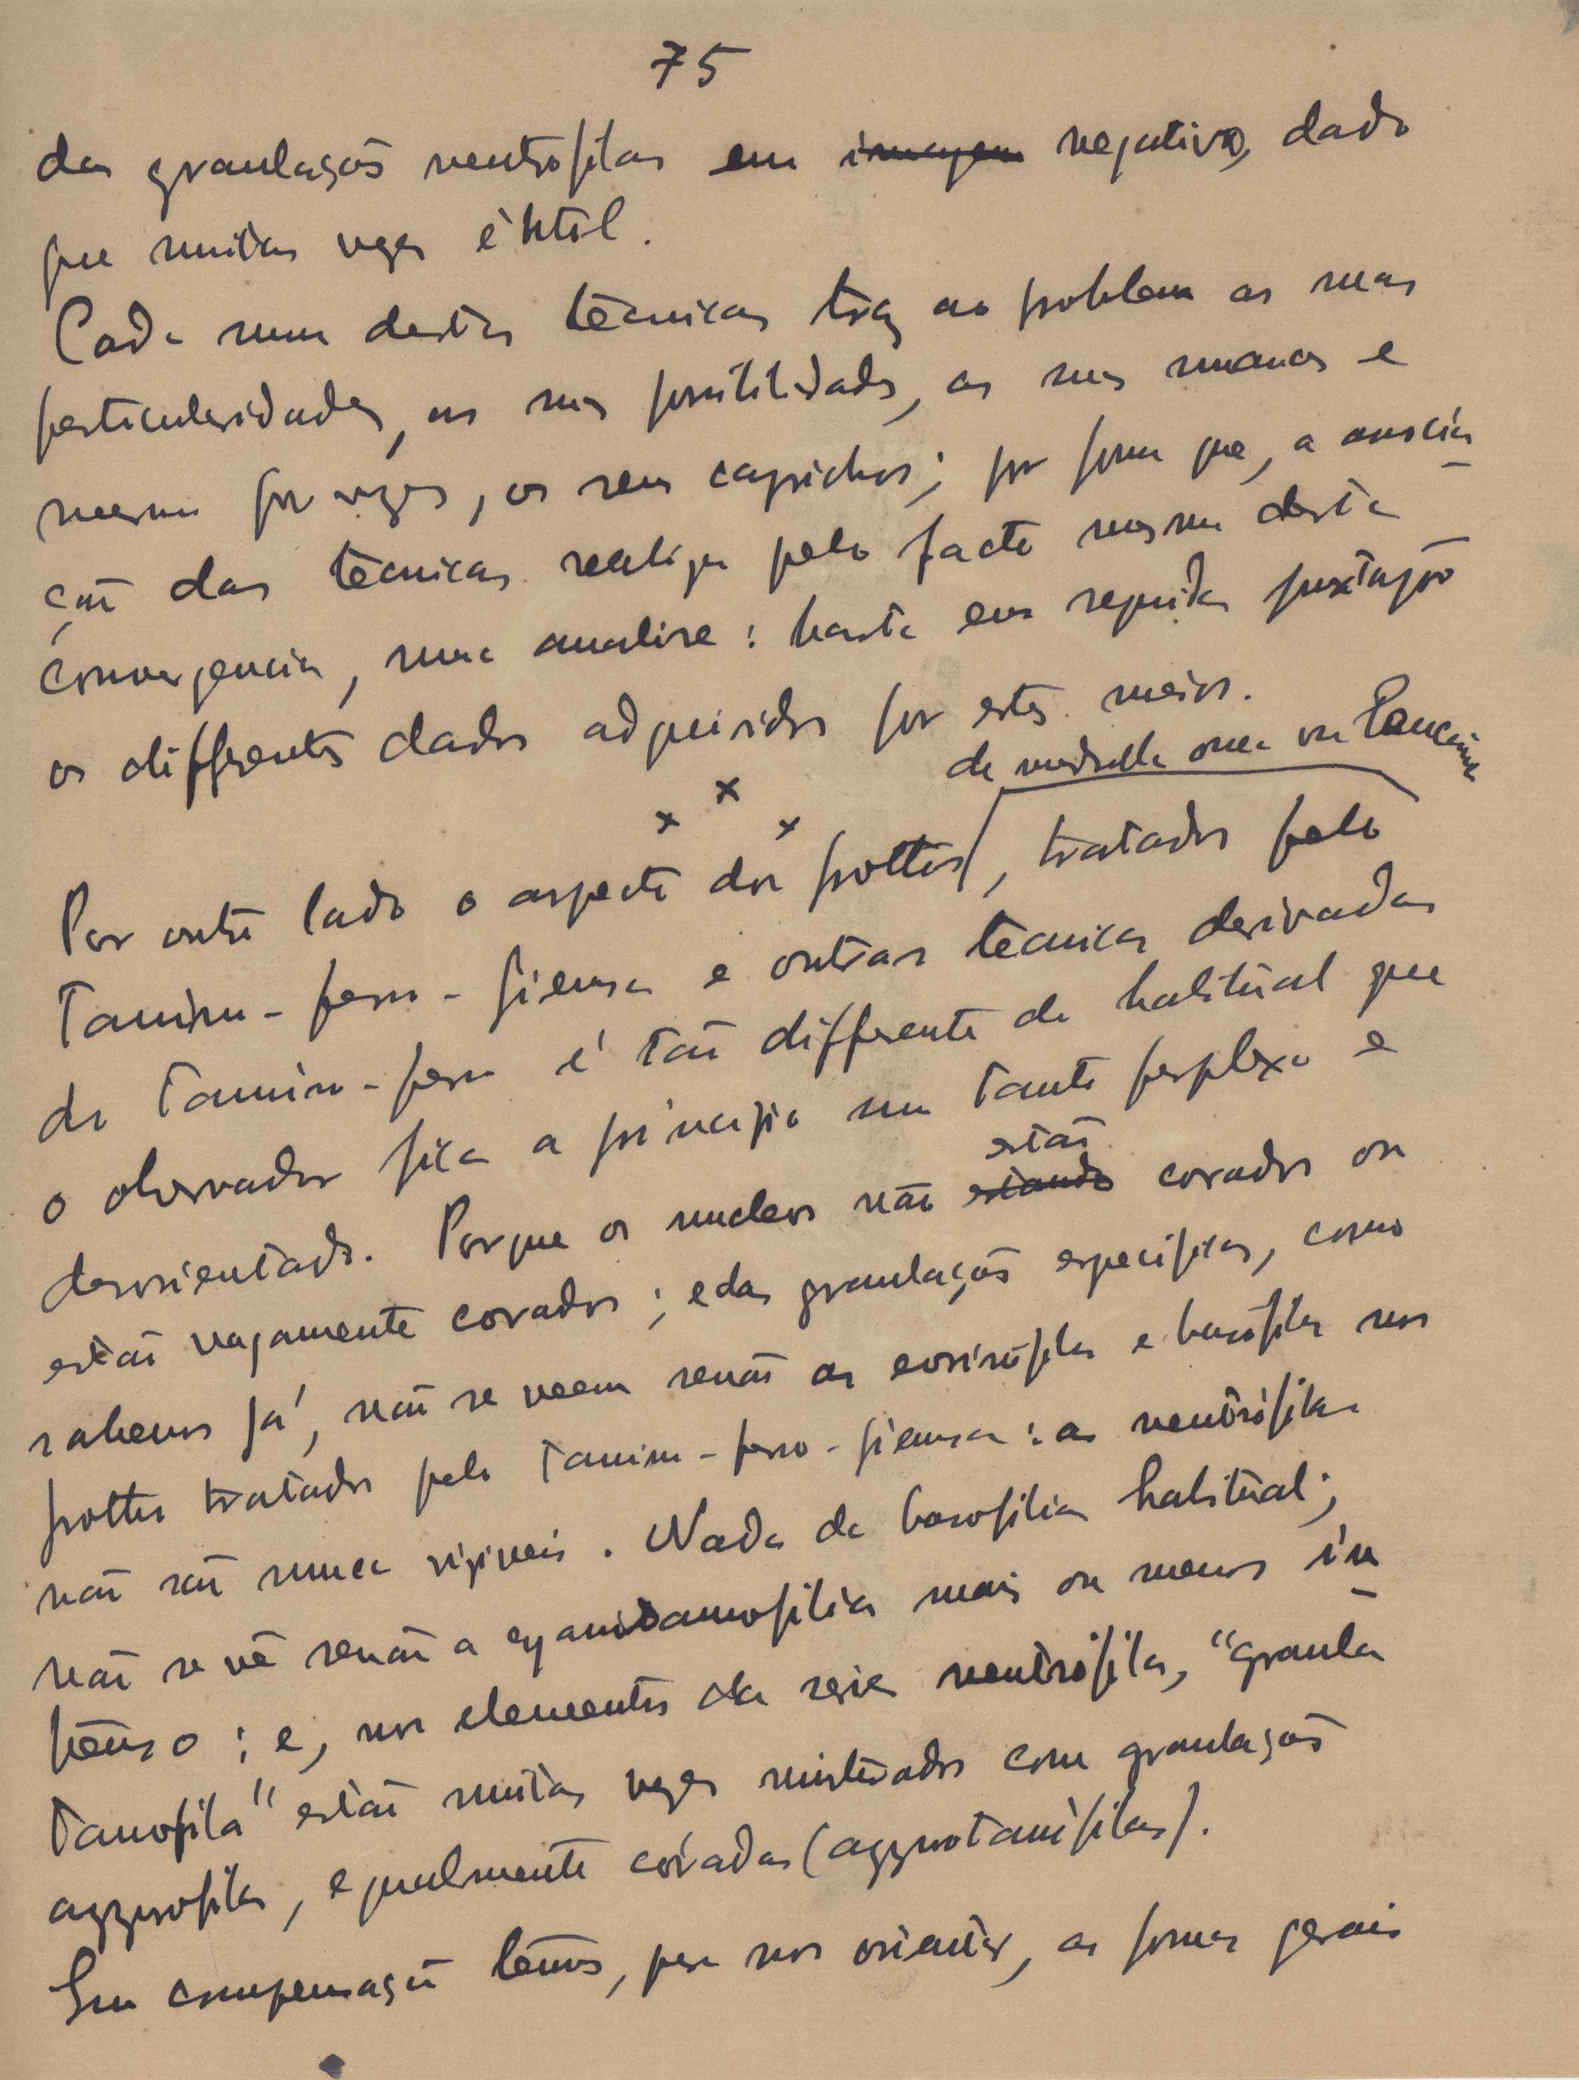 75
das granulações neutrofilas em ~~imagem~~ negativo, dado
que muitas vezes é util.
Cada uma destas técnicas traz ao problema as suas
particularidades, as suas possibilidades, as suas nuances e
mesmo por vezes, os seus caprichos; por forma que, a associa
ção das técnicas realiza pelo facto mesmo desta
convergencia, uma analise: basta em seguida
os differentes dados adquiridos por estes meios.
x x x
de medulla ossea ou leucemia
Por outro lado o aspecto dos frottis, tratados pelo
Tanino-ferro-Giemsa e outras técnicas derivadas
do Tanino-ferro é tão differente do habitual que
o observador fica a principio um tanto perplexo e
estão
desorientado. Porque os nucleos não ~~estando~~ corados ou
estão vagamente corados; e das granulações especificas, como
sabemos já, não se veem senão as eosinófilas e basófilas nos
frottis tratados pelo tanino-ferro-giemsa: as neutrófilas
não são nunca visiveis. Nada da basofilia habitual;
não se vê senão a cyanotanofilia mais ou menos in
tenso: e, nos elementos da serie neutrófila, "granula
tanofila" estão muitas vezes misturados com granulações
azzurofilas, egualmente córadas (azzurotanófilas).
Em compensação temos, para nos orientar, as formas gerais